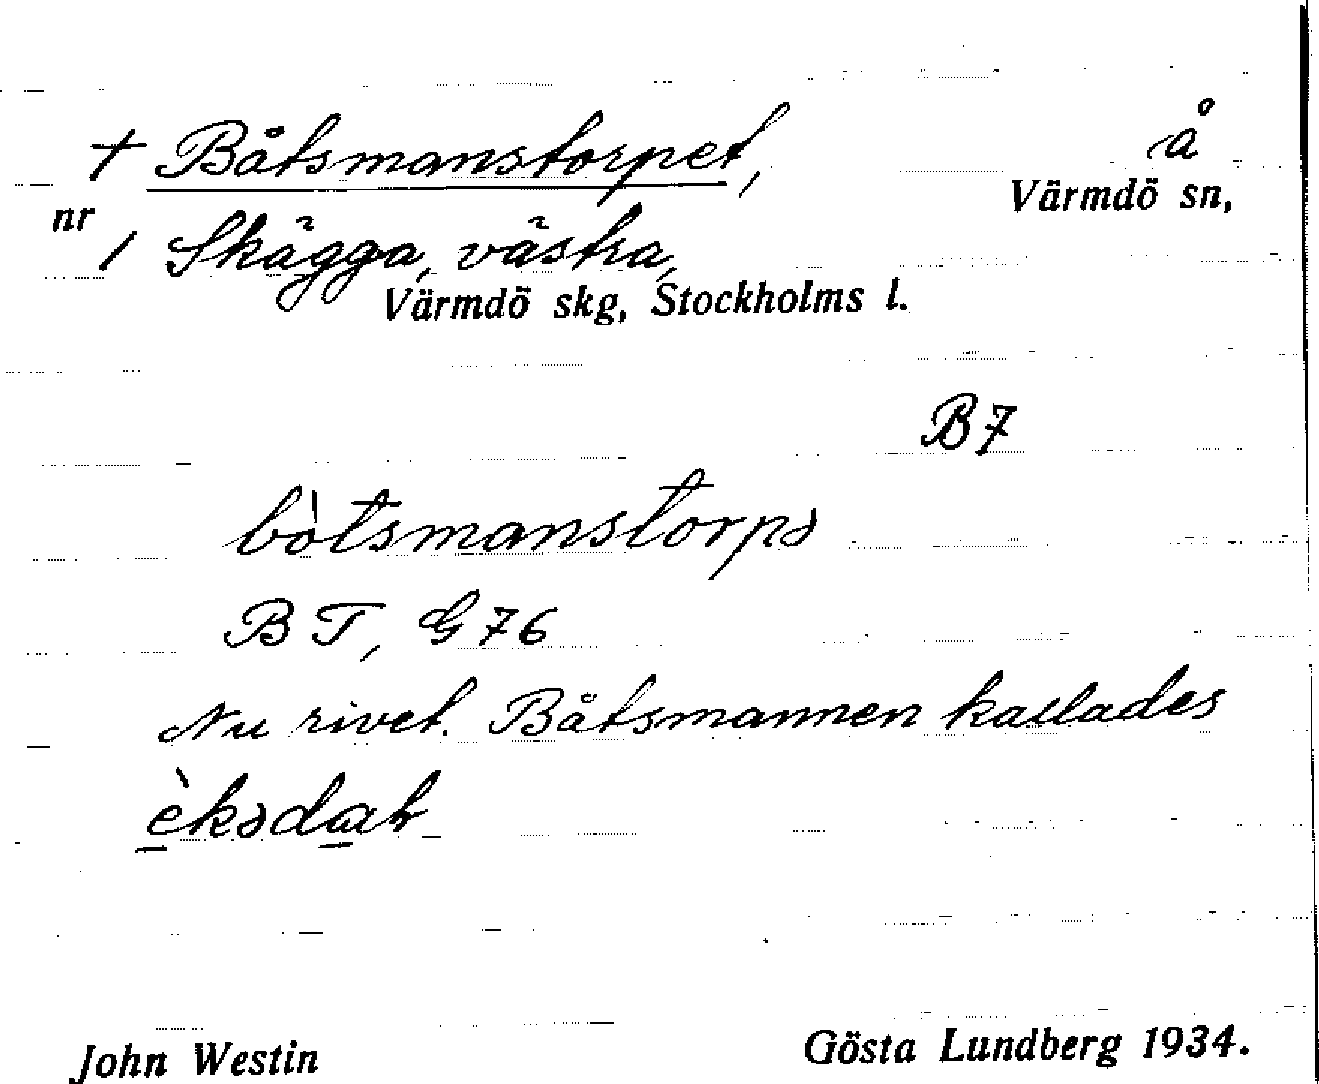 † Båtsmanstorpet, å
Värmdö sn,
nr 1 Skägga, västra,
Värmdö skg, Stockholms l.
B7
bòtsmanstorpə
BT, G76
Nu rivet. Båtsmannen kallades
èkədal
John Westin Gösta Lundberg 1934.